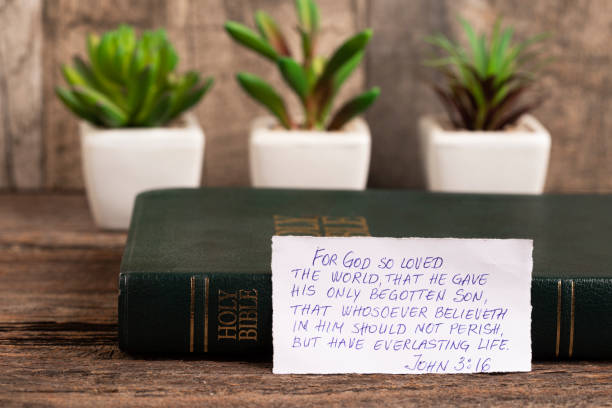 HOLY BIBLE
HOLY
BIBLE
FOR GOD SO LOVED
THE WORLD, THAT HE GAVE
HIS ONLY BEGOTTEN SON,
THAT WHOSOEVER BELIEVETH
IN HIM SHOULD NOT PERISH,
BUT HAVE EVERLASTING LIFE.
JOHN 3:16